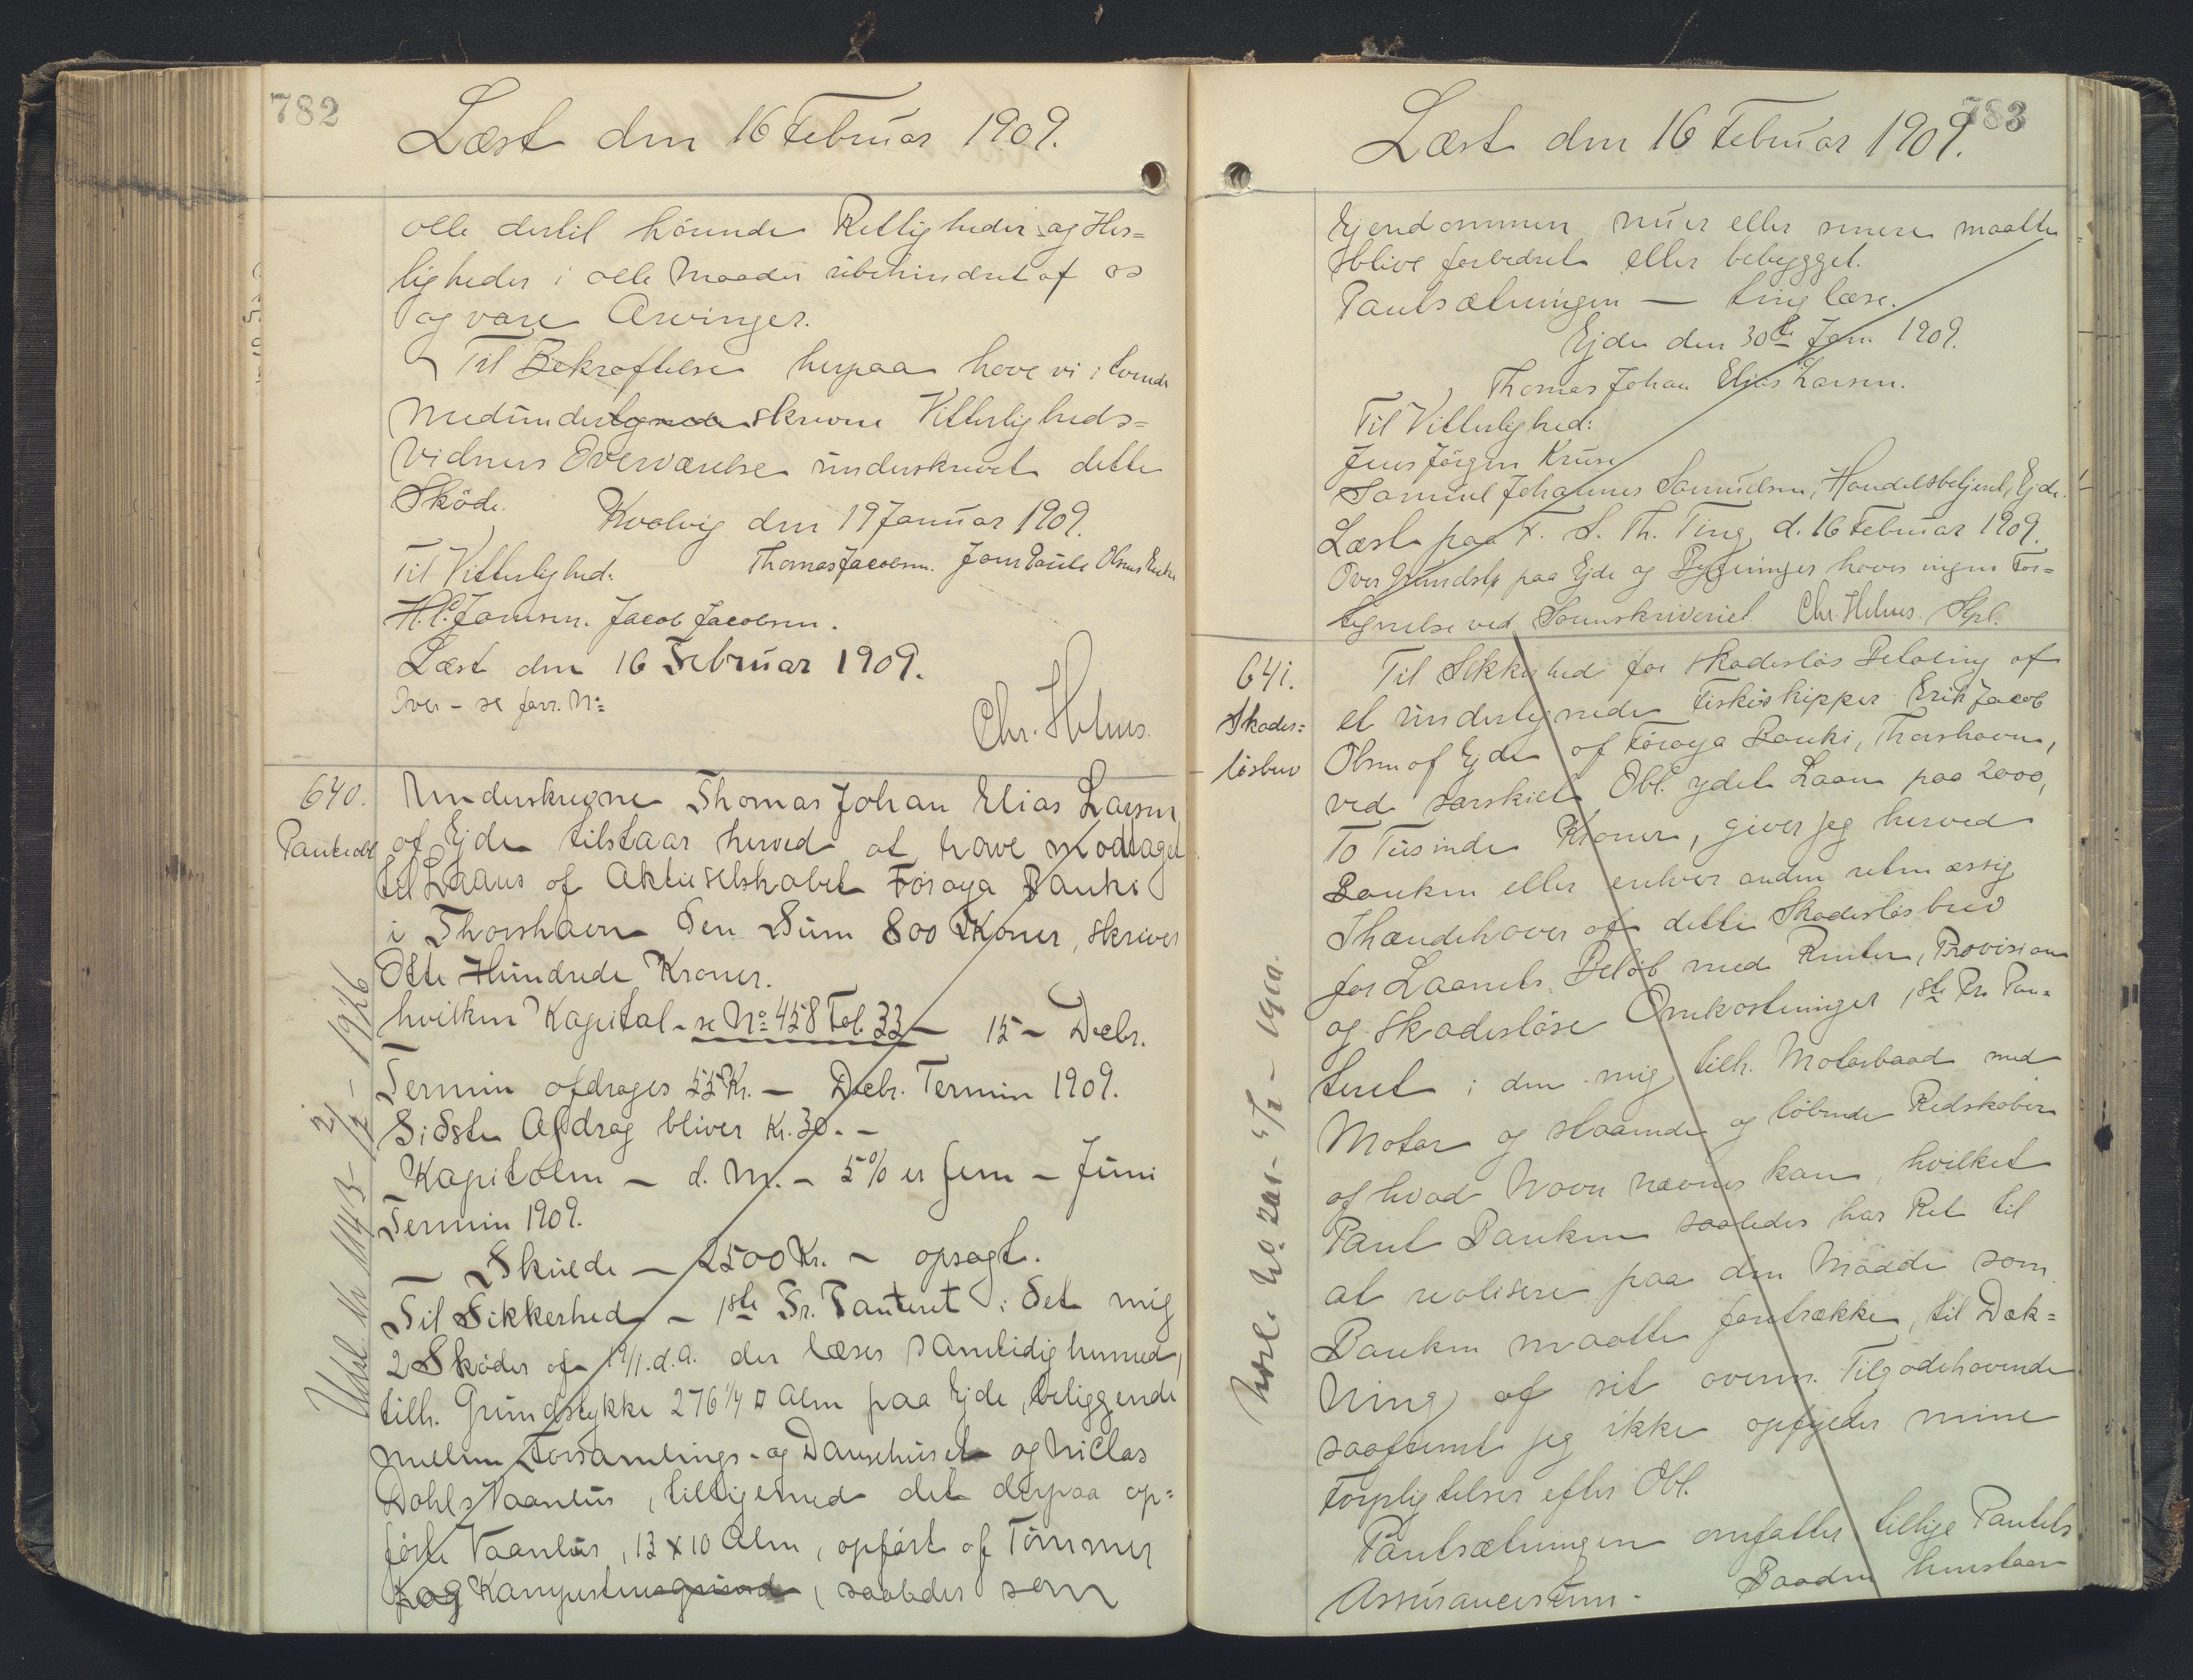 782
Læst den 16 Februar 1909.
alle dertil hørende Rettigheder og Her=
ligheder i alle Maader ubehindret af os
og vore Arvinger.
Til Bekræftelse herpaa have vi i tvende
medundertegnede skrevne Vitterligheds=
vidners Overværelse underskrevet dette
Skøde.
Kvalvig den 19 Januar 1909.
Til Vitterlighed: Thomas Jacobsen. Jens Paule Olsens Enke
H.C. Joensen. Jacob Jacobsen.
Læst den 16 Februar 1909.
Over - se forr. No
Chr. Helms.
640.
Panteobl
Underskrevne Thomas Johan Elias Larsen
af Ejde tilstaar herved at have modtaget
til Laans af Aktieselskabet Föroya Banki
i Thorshavn den Sum 800 Kroner, skriver
Otte Hundrede Kroner.
hvilken Kapital - se No 458 Fol. 33 — 15 - Decbr.
Termin afdrages 55 Kr. — Decbr. Termin 1909.
Sidste Afdrag bliver Kr. 30. -
Kapitalen — d. M. - 5% er fem - Juni
Termin 1909.
— Skulde — 2500 Kr. - opsagt.
Til Sikkerhed - 1ste Pr. Panteret i det mig
2 Skøder af 19/1. d.A. der læses samtidig hermed,
tilh. Grundstykke 276 1/4 □ Alen paa Ejde, beliggende
mellem Forsamlings- og Dansehuset og Niclas
Dahls Vaanhus, tilligemed det derpaa op=
førte Vaanhus, 13 x 10 Alen, opført af Tømmer
paa og Kampestensgrund, saaledes som
783
Læst den 16 Februar 1909.
Ejendommen nu er eller senere maatte
blive forbedret eller bebygget.
Pantsætningen — tinglæse.
Ejde den 30te Jan. 1909.
Thomas Johan Elias Larsen.
Til Vitterlighed:
Jens Jörgen Kruse
Samuel Johannes Samuelsen, Handelsbetjent, Ejde.
Læst paa F. S. Th. Ting, d. 16 Februar 1909.
Over Grundstk paa Ejde og Bygninger haves ingen For=
tegnelse ved Sorenskriveriet. Chr. Helms. Kpl.
641.
Skades=
løsbrev
Til Sikkerhed for skadesløs Betaling af
et undertegnede Fiskeskipper Erik Jacob
Olsen af Ejde af Föroya Banki, Thorshavn,
ved særskilt Obl. ydet Laan paa 2000,
To Tusinde Kroner, giver jeg herved
Banken eller enhver anden retmæssig
Ihændehaver af dette Skadesløsbrev
for Laanets Beløb med Renter, Provision
og skadesløse Omkostninger 1ste Pr. Pan=
teret i den mig tilh. Motorbaad med
Motor og staaende og løbende Redskaber
af hvad Navn nævnes kan, hvilket
Pant Banken saaledes har Ret til
at realisere paa den Maade som
Banken maatte foretrække, til Dæk=
ning af sit ovenn. Tilgodehavende
saafremt jeg ikke opfylder mine
Forpligtelser efter Obl.
Pantsætningen omfatter tillige Pantets
Assurancesum. Baaden henstaar